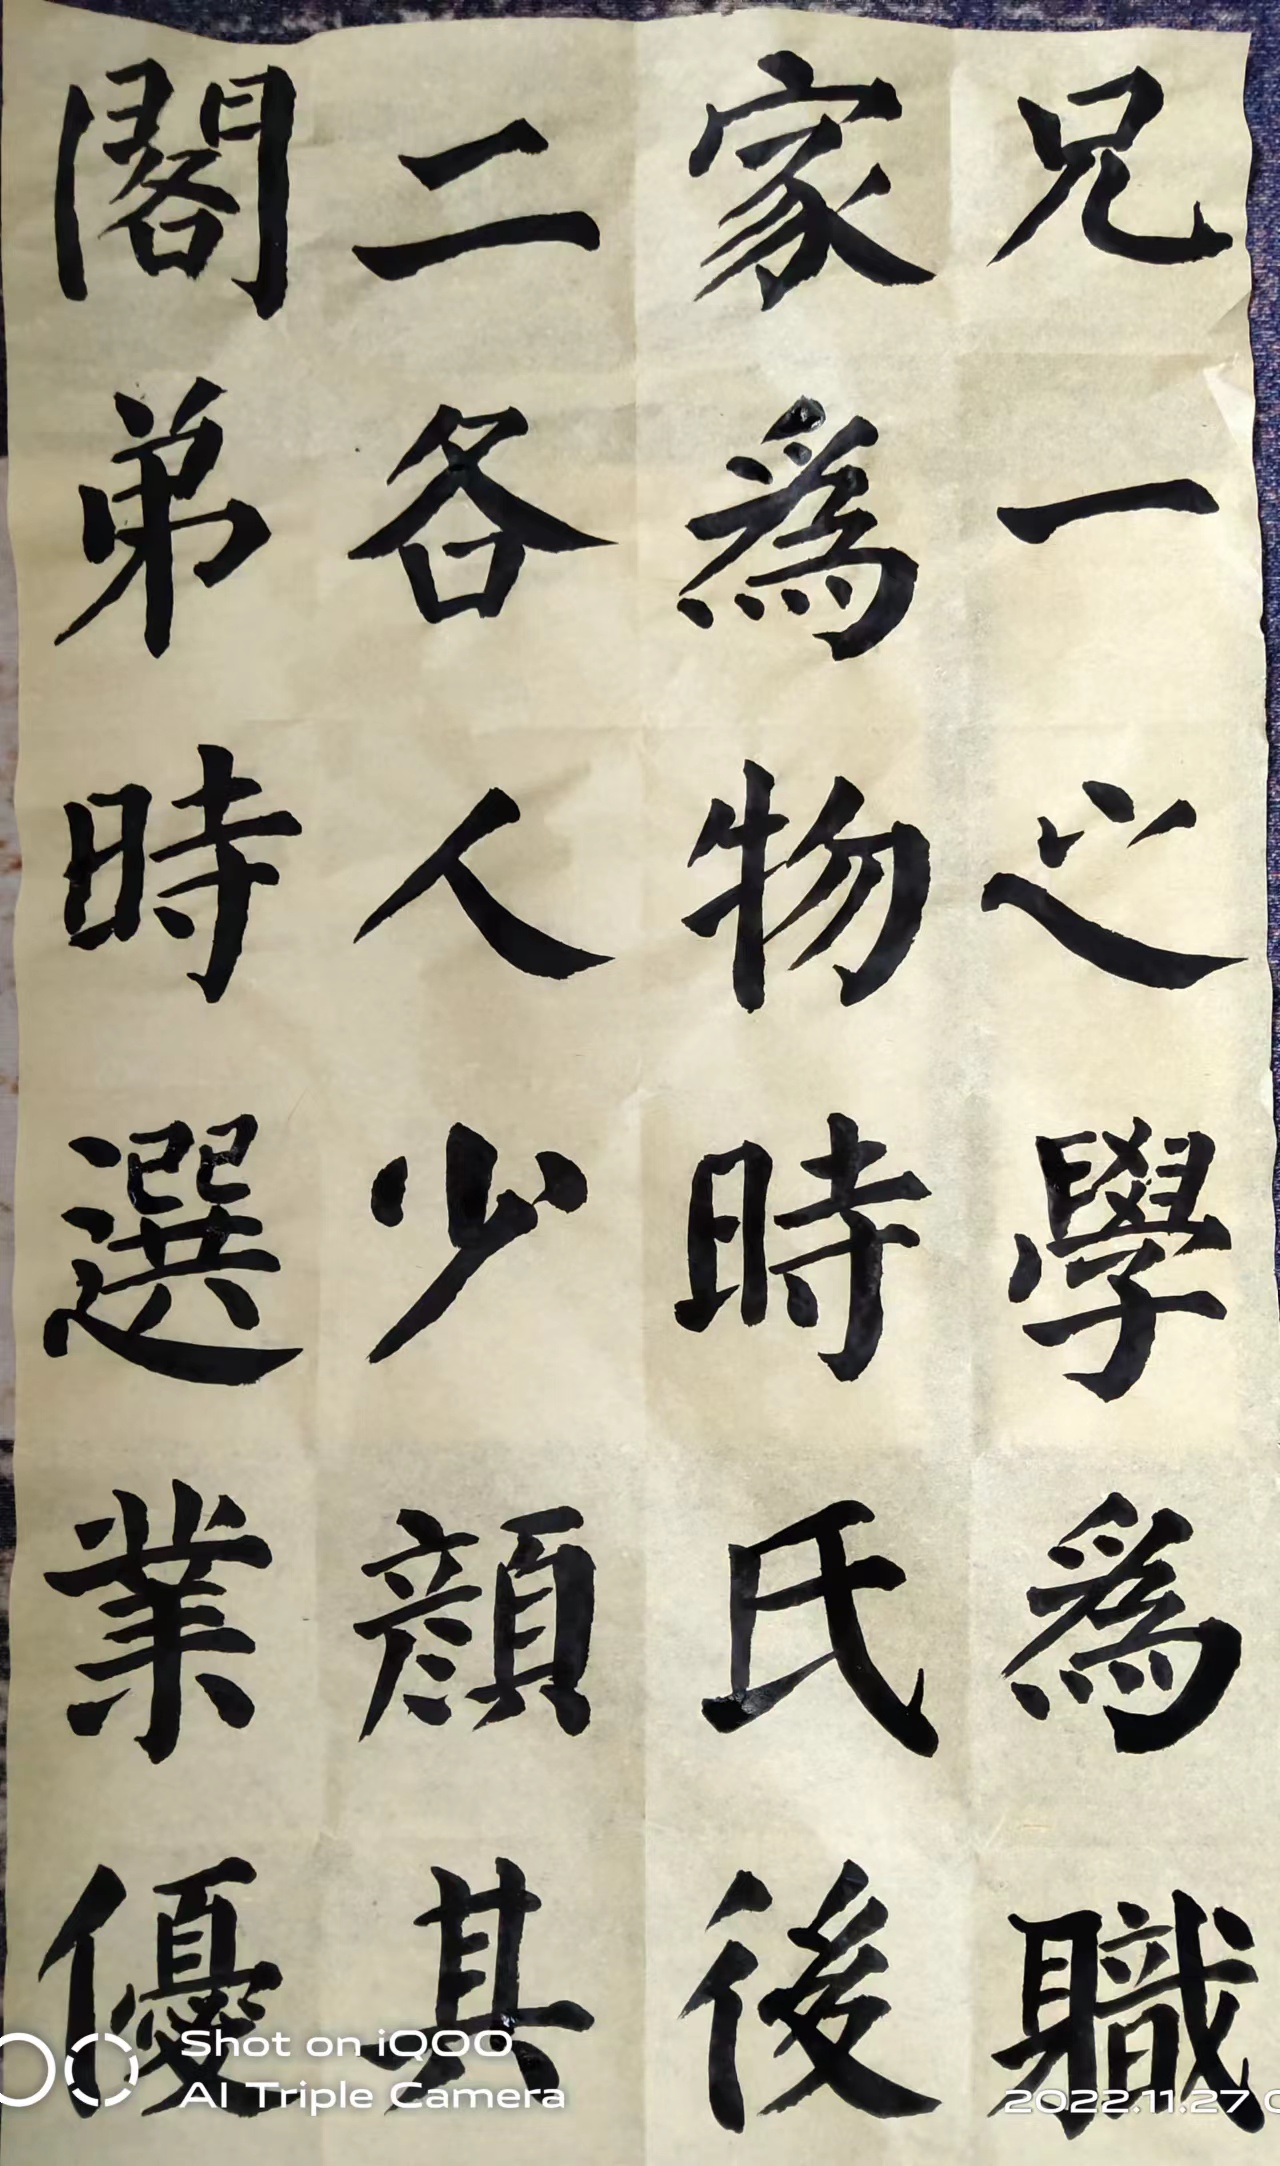 兄一之學為職
家為物時氏後
二各人少顏其
閣弟時選業優
Shot on iQOO
AI Triple Camera
2022.11.27